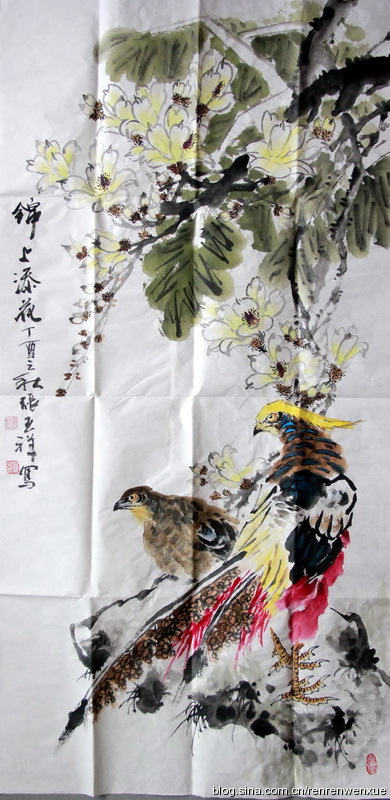 錦上添花丁酉之秋張玉祥寫
blog.sina.com.cn/renrenwenxue